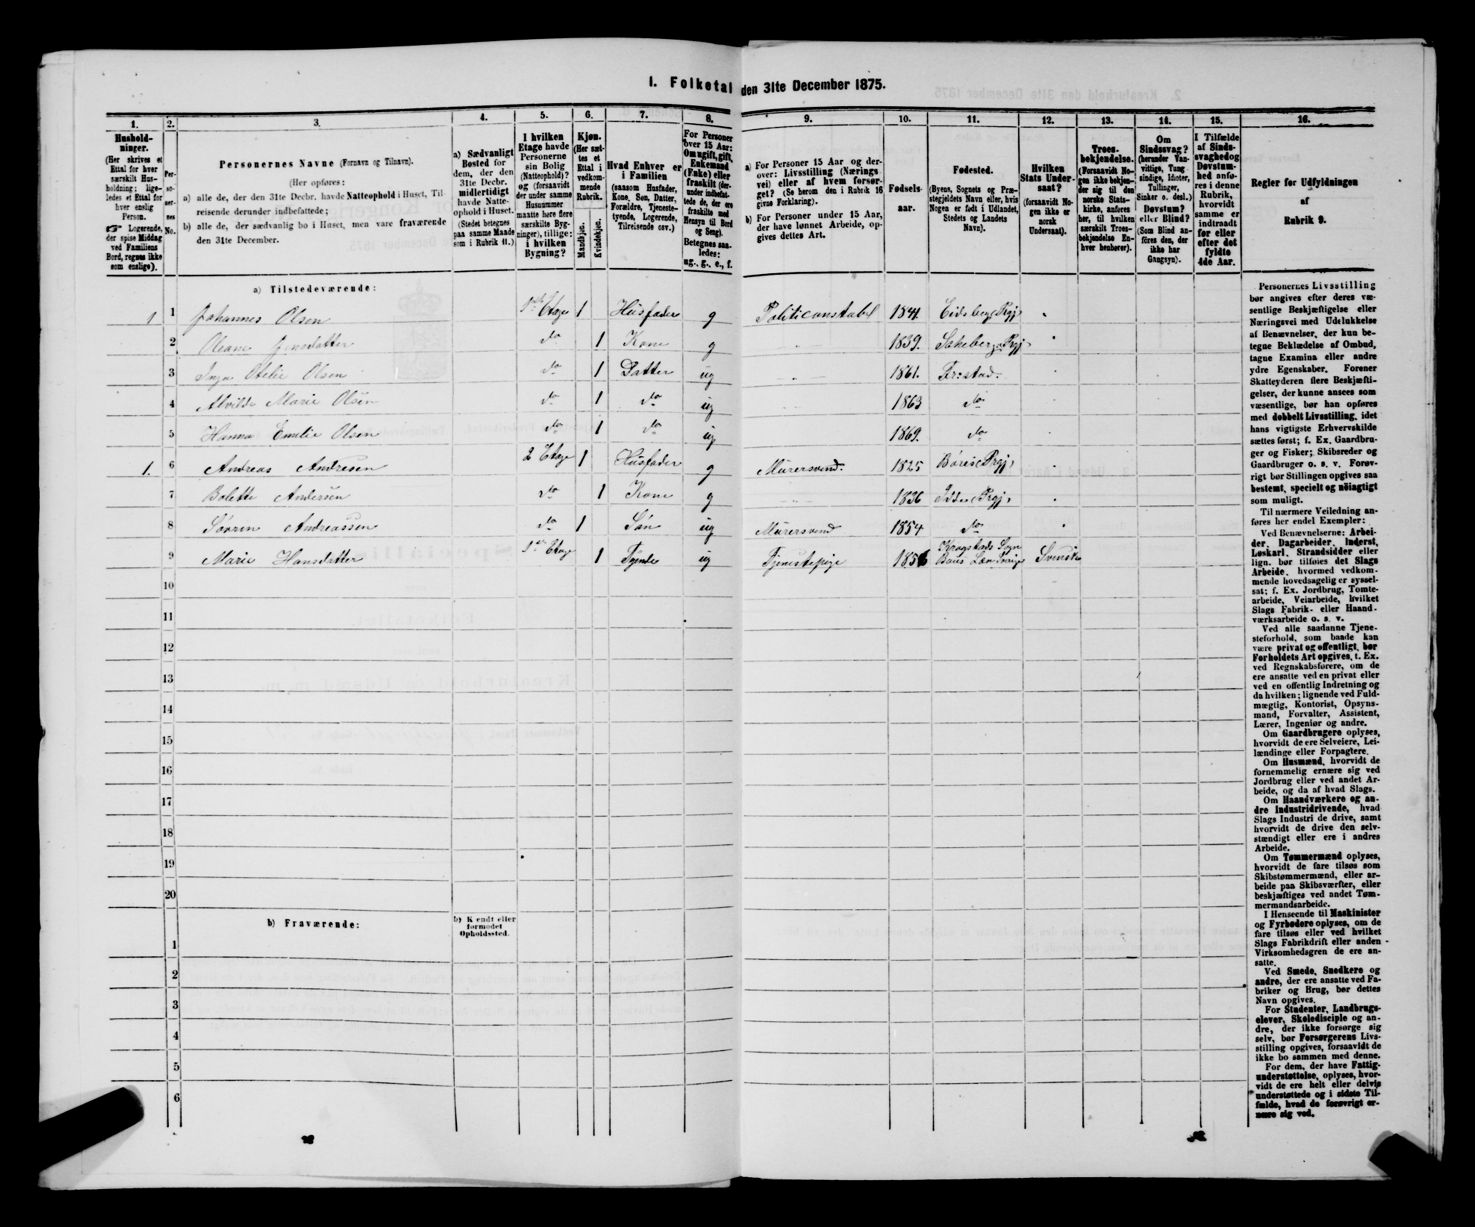 I. Folketal den 31te December 1875.
1. 2. 3. 4. 5. 6. 7. 8. 9. 10. 11. 12. 13. 14. 15. 16.
Hushold-
ninger.
(Her skrives et
Ettal for hver
særskilt Hus-
holdning; lige-
ledes et Ettal for
hver enslig
Person.
☞ Logerende,
der spise Middag
ved Familiens
Bord, regnes ikke
som enslige).
Per-
so-
ner-
nes
No.
Personernes Navne (Fornavn og Tilnavn).
(Her opføres:
a) alle de, der den 31te Decbr. havde Natteophold i Huset, Til-
reisende derunder indbefattede;
b) alle de, der sædvanlig bo i Huset, men vare fraværende
den 31te December.
a) Sædvanligt
Bosted for
dem, der den
31te Decbr.
midlertidigt
havde Natte-
ophold i Huset.
(Stedet betegnes
paa samme Maade
som i Rubrik 11.)
I hvilken
Etage havde
Personerne
sin Bolig
(Natteophold)?
og (forsaavidt
der under samme
Husnummer
maatte høre flere
særskilte Byg-
ninger), tillige:
i hvilken
Bygning?
Kjøn.
(Her sæt-
tes et
Ettal i
vedkom-
mende
Rubrik.)
Mandkjøn.
Kvindekjøn.
Hvad Enhver er
i Familien
(saasom Husfader,
Kone, Søn, Datter,
Forældre, Tjeneste-
tyende, Logerende,
Tilreisende osv.)
For Personer
over 15 Aar:
Om ugift, gift,
Enkemand
(Enke) eller
fraskilt (der-
under indbefat-
tede de, der ere
fraskilte med
Hensyn til Bord
og Seng).
Betegnes saa-
ledes:
ug., g., e., f.
a) For Personer 15 Aar og der-
over: Livsstilling (Nærings-
vei) eller af hvem forsør-
get? (Se herom den i Rubrik 16
givne Forklaring).
b) For Personer under 15 Aar,
der have lønnet Arbeide, op-
gives dettes Art.
Fødsels-
aar.
Fødested.
(Byens, Sognets og Præ-
stegjeldets Navn eller, hvis
Nogen er født i Udlandet,
Stedets og Landets
Navn).
Hvilken
Stats Under-
saat?
(forsaavidt No-
gen ikke er
norsk
Undersaat).
Troes-
bekjendelse.
(Forsaavidt No-
gen ikke bekjen-
der sig til den
norske Stats-
kirke, anføres
her, til hvilken
særskilt Troes-
bekjendelse En-
hver henhører).
Om
Sindssvag?
(herunder Van-
vittige, Tung-
sindige, Idioter,
Tullinger,
Sinker o. desl.)
Døvstum?
eller Blind?
(Som Blind an-
føres den, der
ikke har
Gangsyn).
I Tilfælde
af Sinds-
svaghed og
Døvstum-
hed anfø-
res i denne
Rubrik,
hvorvidt
samme er
indtraadt
før eller
efter det
fyldte
4de Aar.
Regler for Udfyldningen
af
Rubrik 9.
a) Tilstedeværende:
1 1 Johannes Olsen 1ste Etage 1 Husfader g Politiconstabel 1841 Eidsberg Prgj.
2 Oleane Jensdatter do 1 Kone g 1839. Skieberg Prgj.
3 Inga Otelie Olsen do 1 Datter ug 1861. Fr.stad.
4 Alvilde Marie Olsen do 1 do ug 1863 do
5 Hanna Emilie Olsen do 1 do ug 1869. do
1. 6 Andreas Andresen 2 Etage 1 Husfader g Murersvend. 1825 Prgj.
7 Bolette Andersen do 1 Kone g 1836 Prgj.
8 Sövren Andreassen do 1 Søn ug Murersvend 1854 do
9 Marie Hansdatter 1ste Etage 1 Tyende ug Tjenestepige 1856 Krogstads Sogn Svensk
10
11
12
13
14
15
16
17
18
19
20
b) Fraværende:
b) Kjendt eller
formodet
Opholdssted.
1
2
3
4
5
6
Personernes Livsstilling
bør angives efter deres væ-
sentlige Beskjæftigelse eller
Næringsvei med Udelukkelse
af Benævnelser, der kun be-
tegne Beklædelse af Ombud,
tagne Examina eller andre
ydre Egenskaber. Forener
Skatteyderen flere Beskjæfti-
gelser, der kunne ansees som
væsentlige, bør han opføres
med dobbelt Livsstilling, idet
hans vigtigste Erhvervskilde
sættes først; f. Ex. Gaardbru-
ger og Fisker; Skibsreder og
Gaardbruger o. s. v. Forøv-
rigt bør Stillingen opgives saa
bestemt, specielt og nøiagtigt
som muligt.
Til nærmere Veiledning an-
føres her endel Exempler:
Ved Benævnelserne: Arbei-
der, Dagarbeider, Inderst,
Løskarl, Strandsidder eller
lign. bør tilføies det Slags
Arbeide, hvormed vedkom-
mende hovedsagelig er syssel-
sat; f. Ex. Jordbrug, Tomte-
arbeide, Veiarbeide, hvilket
Slags Fabrik- eller Haand-
værksarbeide o. s. v.
Ved alle saadanne Tjene-
steforhold, som baade kan
være privat og offentligt, bør
Forholdets Art opgives, t. Ex.
ved Regnskabsførere, om de
ere ansatte ved en privat eller
ved en offentlig Indretning og
da hvilken; lignende ved Fuld-
mægtig, Kontorist, Opsyns-
mand, Forvalter, Assistent,
Lærer, Ingeniør og andre.
Om Gaardbrugere oplyses,
hvorvidt de ere Selveiere, Lei-
lændinge eller Forpagtere.
Om Husmænd, hvorvidt de
fornemmelig ernære sig ved
Jordbrug eller ved andet Ar-
beide, og da af hvad Slags.
Om Haandværkere og an-
dre Industridrivende, hvad
Slags Industri de drive, samt
hvorvidt de drive den selv-
stændigt eller ere i andres
Arbeide.
Om Tømmermænd oplyses,
hvorvidt de fare tilsøs som
Skibstømmermænd, eller ar-
beide paa Skibsværfter, eller
beskjæftiges ved andet Tøm-
mermandsarbeide.
I Henseende til Maskinister
og Fyrbødere oplyses, om de
fare tilsøs eller ved hvilket
Slags Fabrikdrift eller anden
Virksomhedsgren de ere an-
satte.
Ved Smede, Snedkere og
andre, der ere ansatte ved Fa-
briker og Brug, bør dettes
Navn opgives.
For Studenter, Landbrugs-
elever, Skoledisciple og an-
dre, der ikke forsørge sig
selv, bør Forsørgerens Livs-
stilling opgives, forsaavidt de
ikke bo sammen med denne.
For dem, der have Fattig-
understøttelse, oplyses, hvor-
vidt de ere helt eller delvis
understøttede og i sidste Til-
fælde, hvad de forøvrigt er-
nære sig ved.